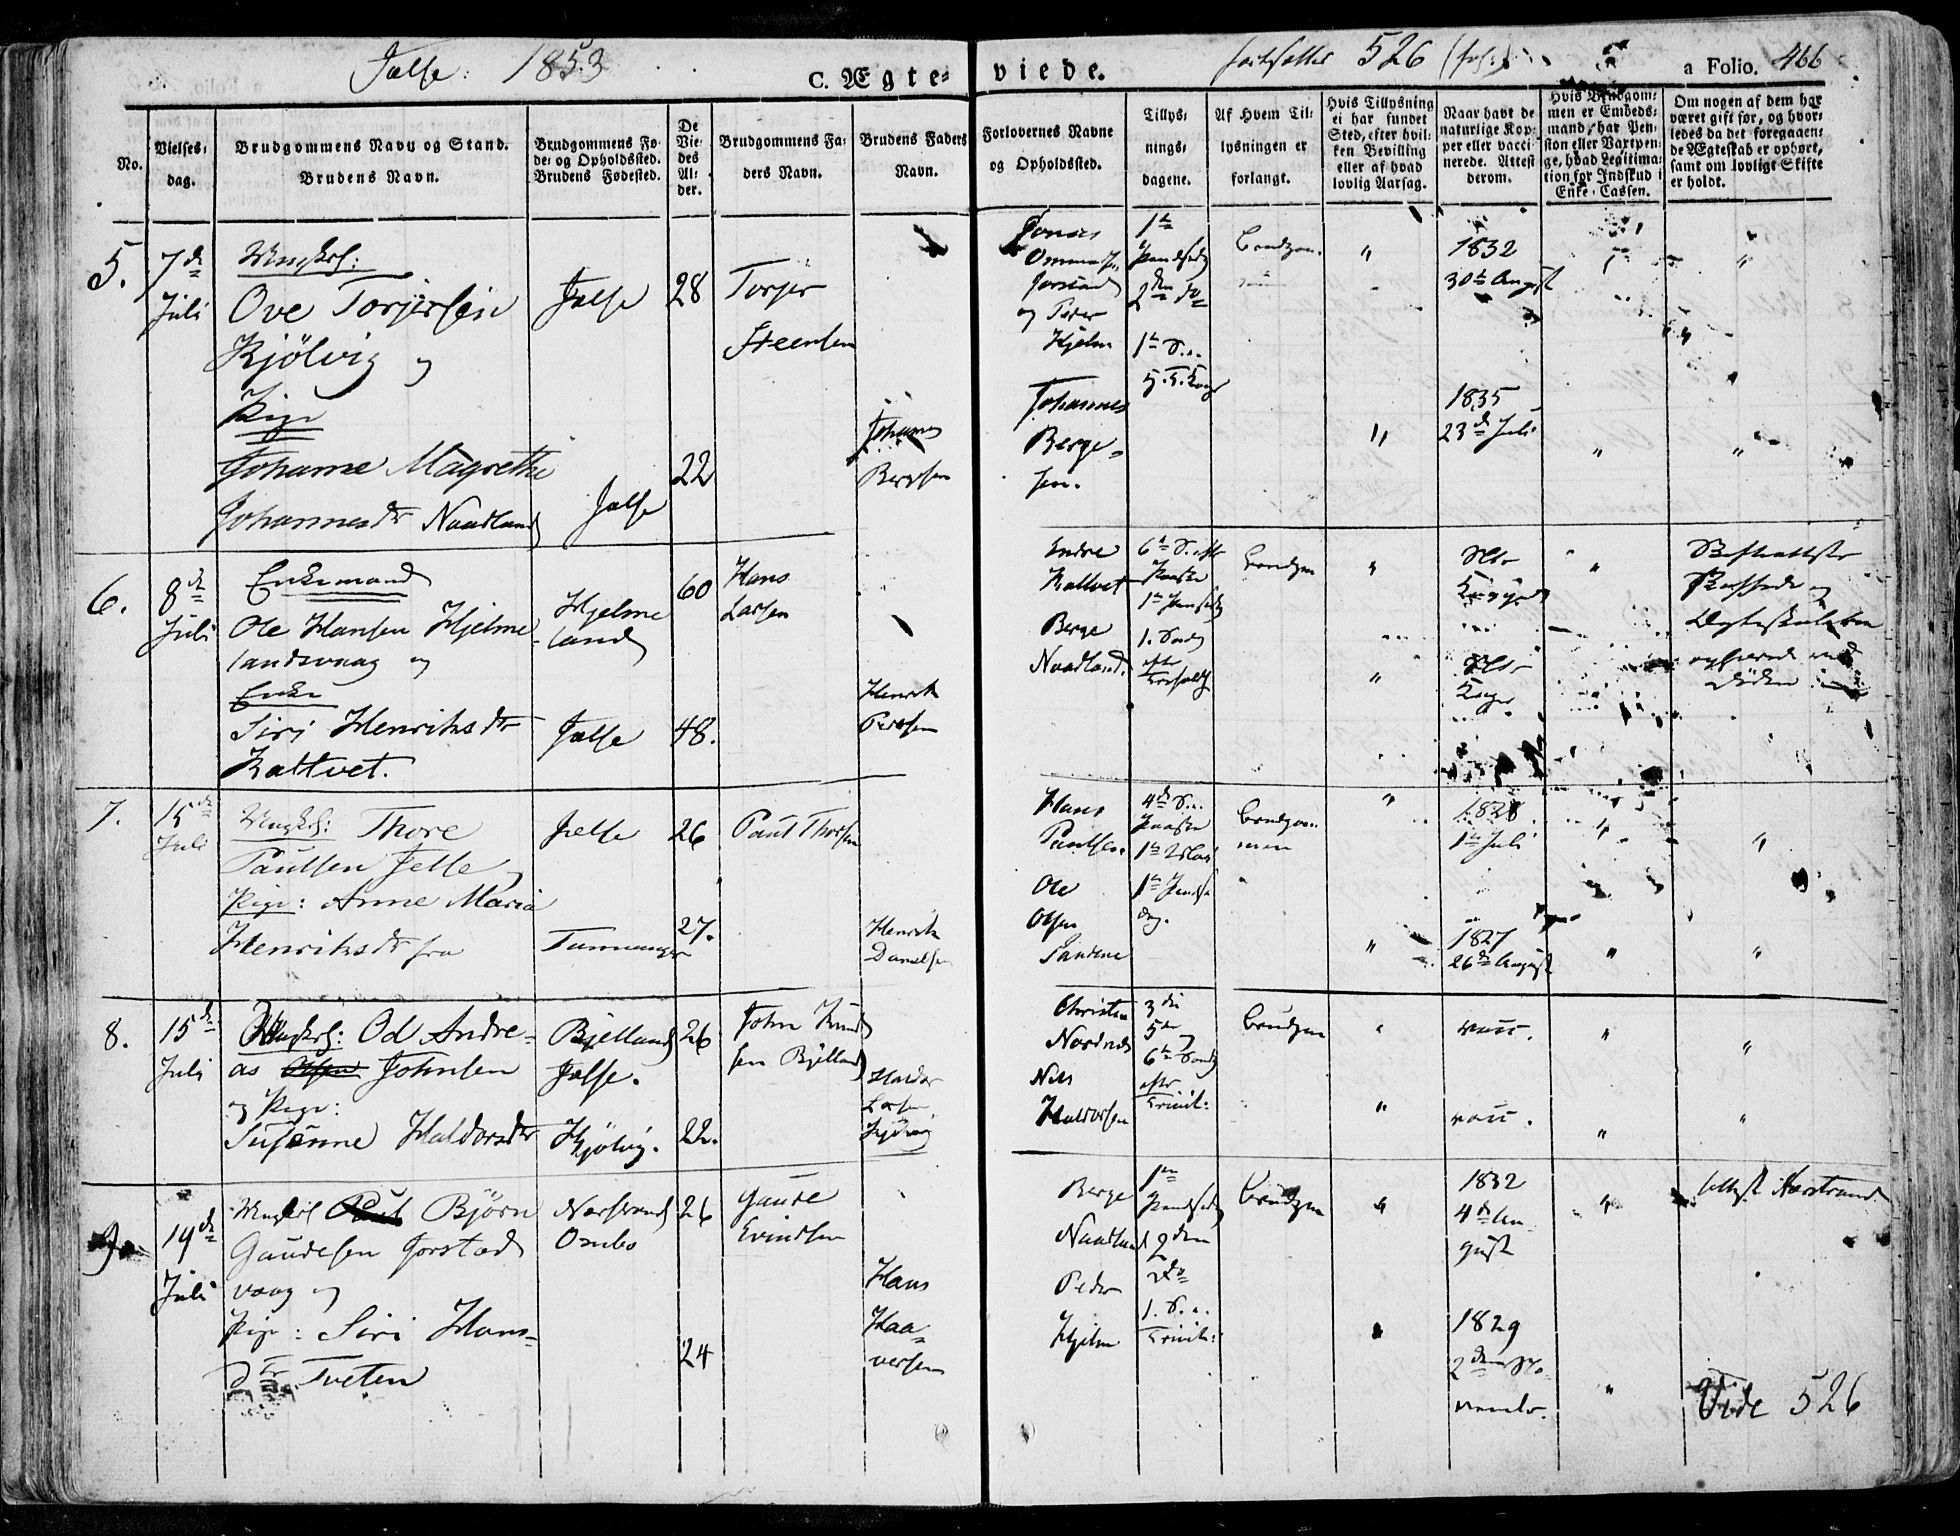 Jælse: 1853
C. Ægte-
viede.
fortsættes 526
a Folio. 466
No.
Vielses-
dag.
Brudgommens Navn og Stand.
Brudens Navn.
Brudgommens Fø-
de- og Opholdssted.
Brudens Fødested.
De
Vie-
des
Al-
der.
Brudgommens Fa-
ders Navn.
Brudens Faders
Navn.
Forlovernes Navne
og Opholdssted.
Tillys-
nings-
dagene.
Af Hvem Til-
lysningen er
forlangt.
Hvis Tillysning
ei har fundet
Sted, efter hvil-
ken Bevilling
eller af hvad
lovlig Aarsag.
Naar havt de
naturlige Kop-
per eller vacci-
nerede. Attest
derom.
Hvis Brudgom-
men er Embeds-
mand, har Pen-
sion eller Vartpen-
ge, hvad Legitima-
tion for Indskud i
Enke-Cassen.
Om nogen af dem har
været gift før, og hvor-
ledes da det foregaaen-
de Ægteskab er ophørt,
samt om lovligt Skifte
er holdt.
5.
7de
Juli
Ungkrl:
Ove Torjersen
Kjölvig og
Pige
Johanne Magrethe
Johannesdtr Naadland
Jælse
Jælse
28
22
Torjer
Steensen
Johannes
Bergesen
Peder
Hjelm
Johannes
Berge-
sen.
1ste
2den Do
Brudgom.
1832
30te August
1835
23de Juli
6.
8de
Juli
Enkemand
Ole Hansen Hjelme
landsvaag og
Enke
Siri Henriksdtr
Kaltvet.
Hjelme
land
Jælse
60
48.
Hans
Larsen
Henrik
Pedersen
Endre
Kaltvet
Berge
Naadland.
Brudgm
7.
15de
Juli
Ungkrl: Thore
Paulsen Jelse
Pige: Anne Maria
Henriksdtr fra
Jælse
Tananger
26
27.
Paul Thorsen
Henrik
Danielsen
Hans
Paulsen
Ole
Olsen
Sandene
Brudgom-
men
1828
1ste Juli
1827
26de August
8.
15de
Juli
Ungkrl: Od Andre-
as Johnsen
og Pige:
Susanne Haldorsdtr
Bjelland
Jælse.
Kjölvig.
26
22.
John Knud
sen Bjelland
Haldor
Larsen
Kjölvig
Christen
Nordnes
Nils
Haldorsen
3die
5te
6te Sondg
eftr
Trinit:
Brudgm
vacc.
vacc.
9.
19de
Juli
Ungkrl Paul Björn
Gaudesen Jorstad
vaag og
Pige: Siri Hans-
dtr Tveten
Narstrand
Ombo
26
24
Gaude
Evindsen
Hans
Haa-
versen
Berge
Naadland
Peder
Hjelm
2den
Do
Trinit:
Brudgm
1832
4de Au
gust
1829
2den No-
vembr.
tillyst Narstrand
Vide 526